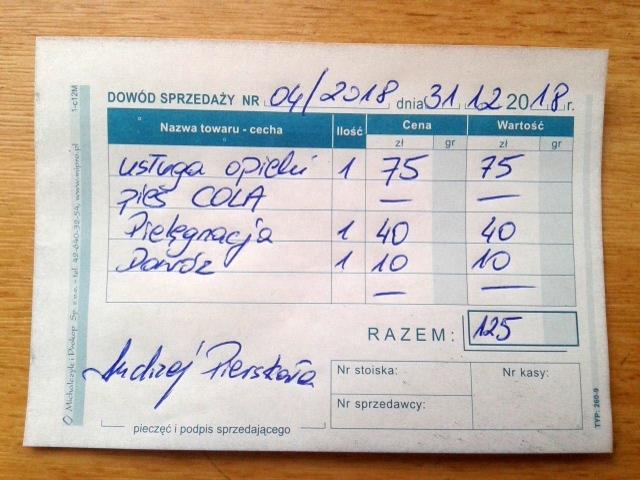 DOWÓD SPRZEDAŻY NR 04/2018 dnia 31.12.2018 r.
Nazwa towaru - cecha Ilość Cena Wartość
zł gr zł gr
usługa opieki 1 75 75
pies COLA — —
Pielęgnacja 1 40 40
Dowóz 1 10 10
— —
RAZEM: 125
Andrzej Pierskała
Nr stoiska: Nr kasy:
Nr sprzedawcy:
pieczęć i podpis sprzedającego
Michalczyk i Prokop Sp. z o.o. - tel. 42-640-32-54, www.mipro.pl 1-c12M
TYP: 260-9